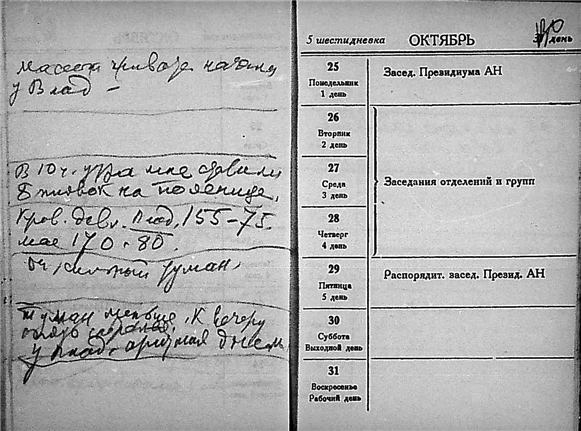 у Влад –
В 10 ч. утра мне ставили
8 пиявок на пояснице.
Кров. давл. Влад. 155–75.
мое 170–80.
Оч. сильный туман.
Туман меньше. К вечеру
опять
у Влад. днем
5 шестидневка ОКТЯБРЬ день
25
Понедельник
1 день
Засед. Президиума АН
26
Вторник
2 день
27
Среда
3 день
Заседания отделений и групп
28
Четверг
4 день
29
Пятница
5 день
Распорядит. засед. Презид. АН
30
Суббота
Выходной день
31
Воскресенье
Рабочий день